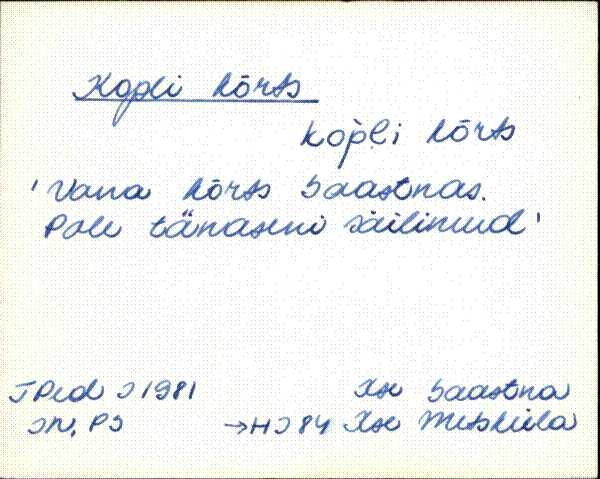 Kopli kõrts
kop̀li kõrts
'Vana kõrts Saastnas.
Pole tänaseni säilinud'
TPed J 1981 Kse Saastna
JN, PJ → HJ 84 Kse Metsküla